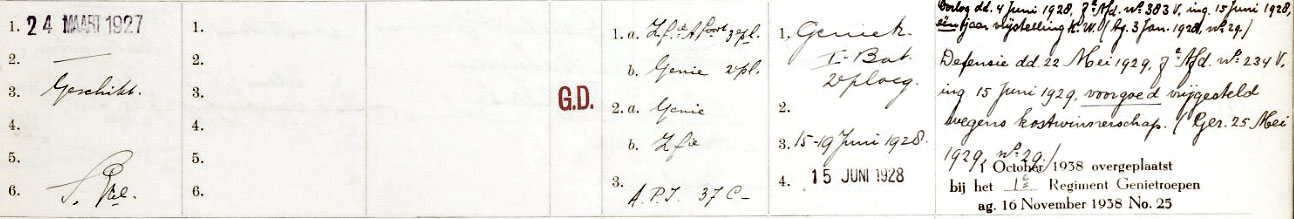 1. 24 MAART 1927
2. —
3. Geschikt.
4.
5.
6.
1.
2.
3.
4.
5.
6.
G.D.
1. a.
b. Genie 2 pl.
2. a. Genie
b. Zfie
3.
A.P.I. 37 C–
1. Geniek.
I– Bat.
2 ploeg.
2.
3. 15-19 Juni 1928.
4. 15 JUNI 1928
Oorlog dd. 4 Juni 1928, 7e Afd. No 383 V, ing. 15 Juni 1928,
één jaar vrijstelling K.W. (Ag. 3 Jan. 1928, No 29.)
Defensie dd. 22 Mei 1929, 7e Afd. No 234 V.
ing. 15 Juni 1929, voorgoed vrijgesteld
wegens kostwinnerschap. (Ger. 25 Mei
1929, No 29.)
1 October 1938 overgeplaatst
bij het 1e Regiment Genietroepen
ag. 16 November 1938 No. 25